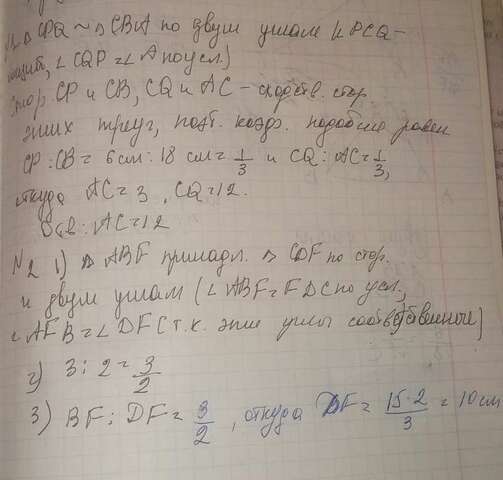 △ CPQ ~ △ CBA по двум углам (∠ PCQ -
общий, ∠ CQP = ∠ A по усл.)
Стор. CP и CB, CQ и AC - сходств. стор.
этих треуг., поэт. коэф. подобия равен
CP : CB = 6 см : 18 см = 1/3 и CQ : AC = 1/3,
откуда AC = 3 , CQ = 12.
Отв: AC = 12
N2 1) △ ABF принадл. △ CDF по стор.
и двум углам (∠ ABF = FDC по усл.,
∠ AFB = ∠ DFC (т.к. эти углы соответственные)
2) 3 : 2 = 3/2
3) BF : DF = 3/2 , откуда DF = 15·2/3 = 10 см